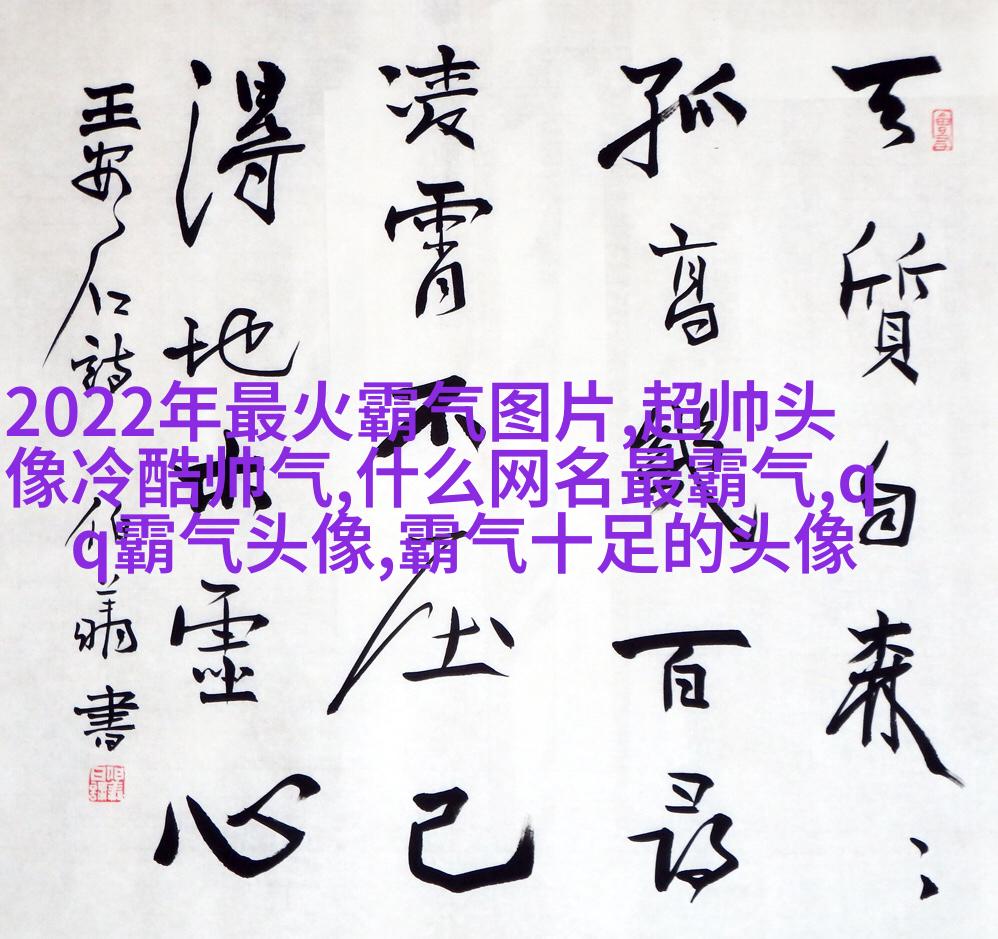 2022年最火霸气图片,超帅头
像冷酷帅气,什么网名最霸气,q
q霸气头像,霸气十足的头像
天質自森〻
孤高幾百尋
凌霄不屈己
得地本虛心
王安石詩 書